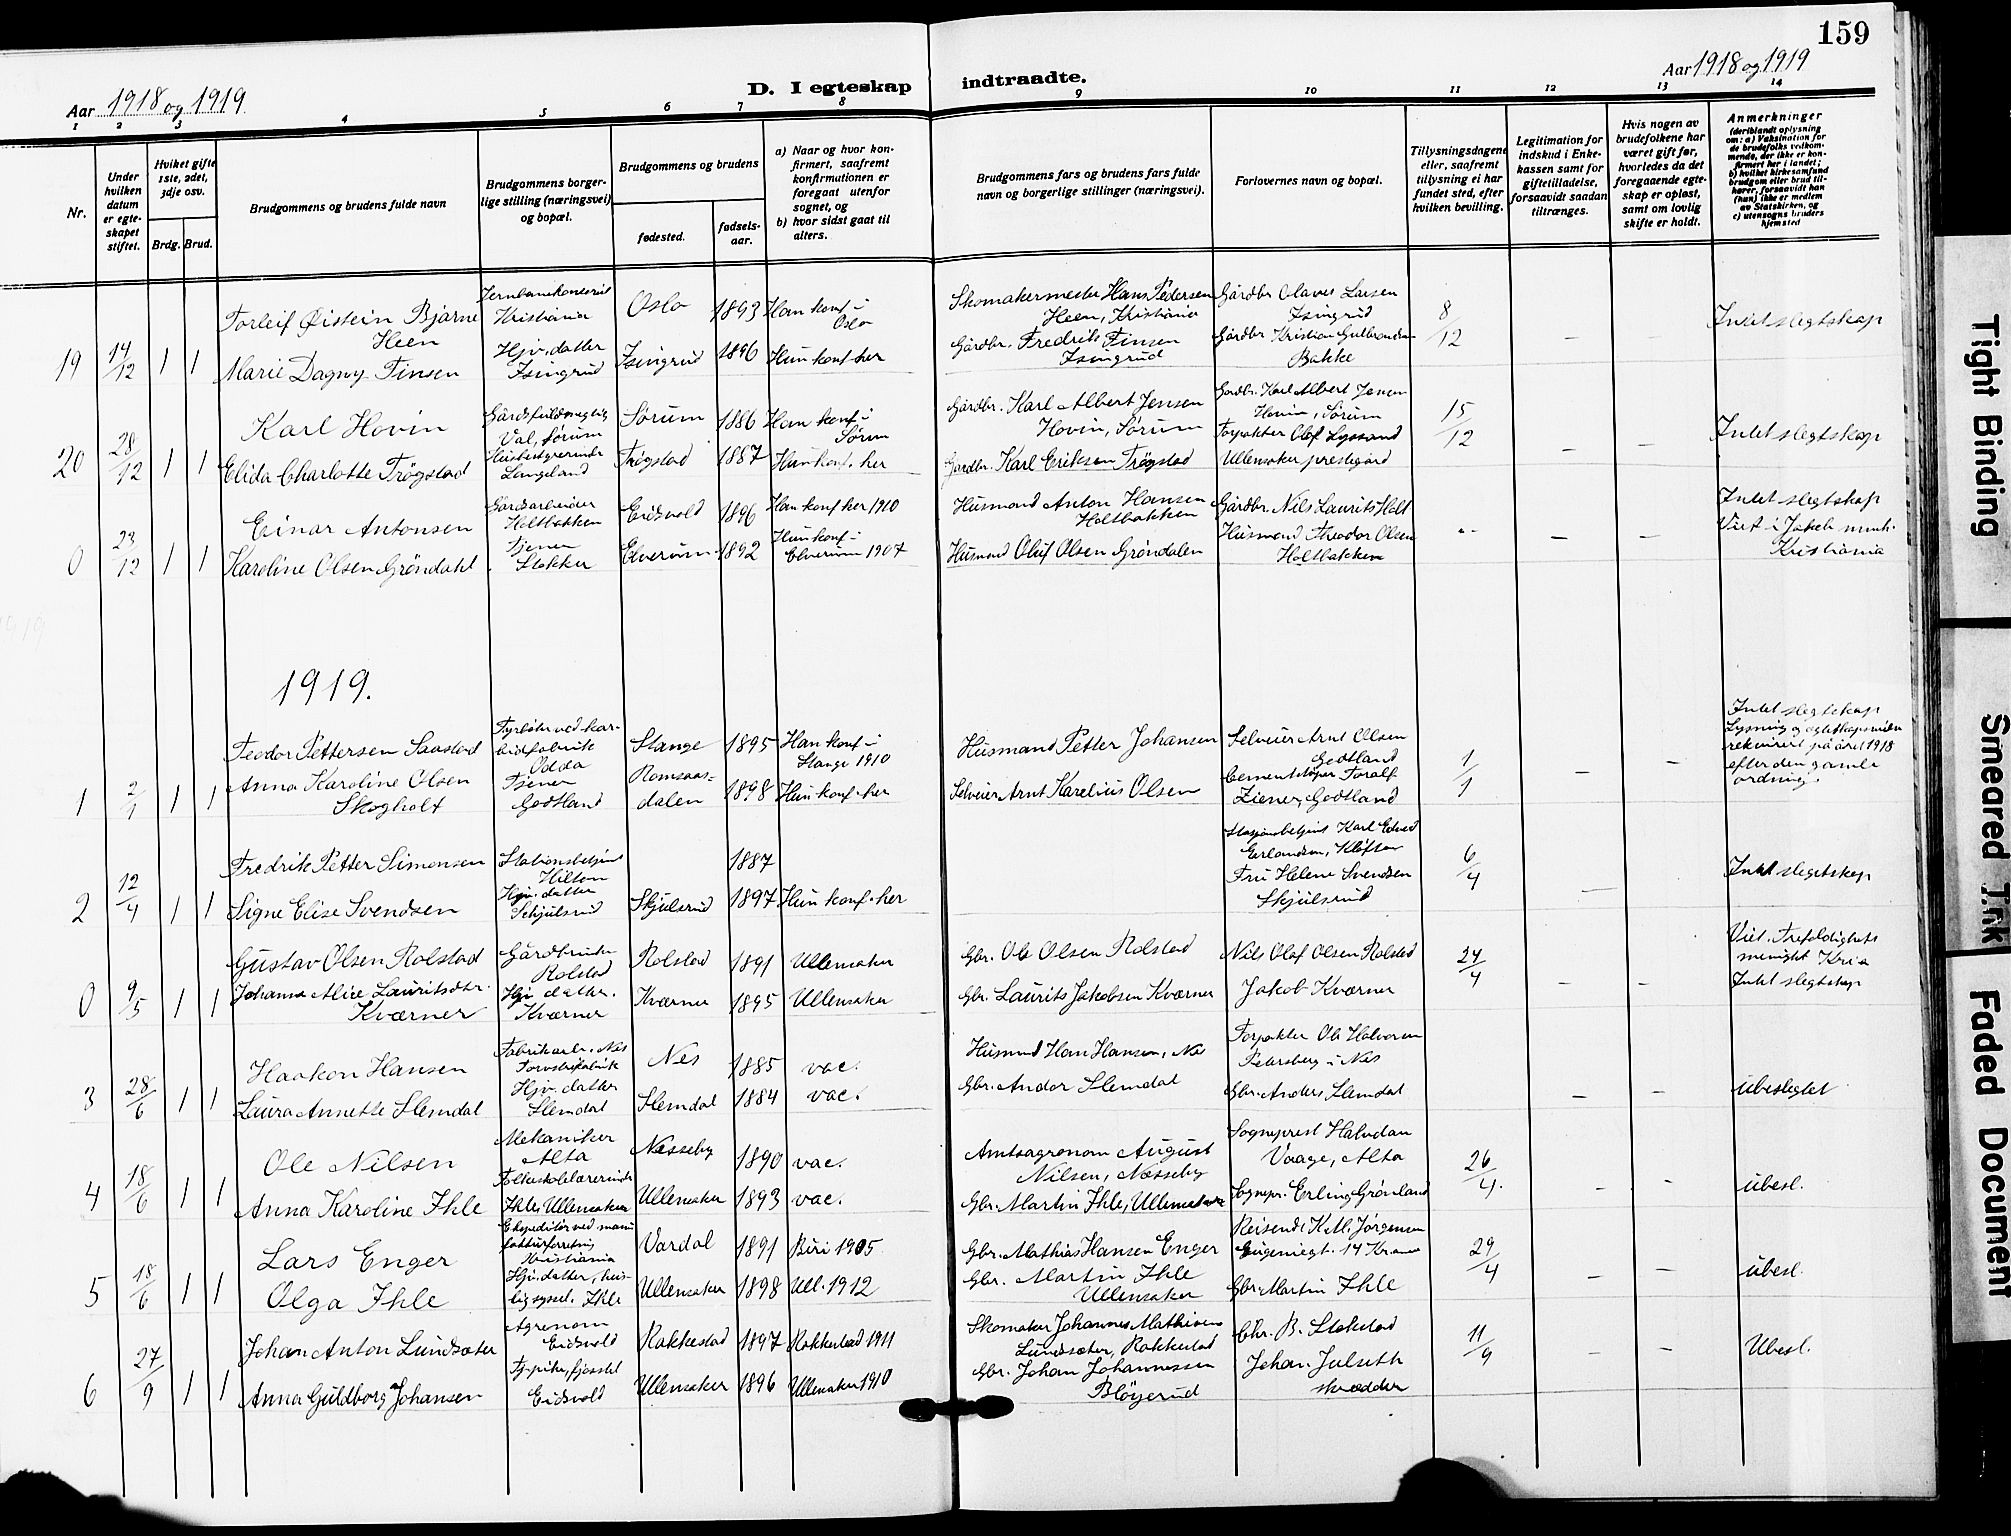 159
Aar 1918 og 1919
D. I egteskap indtraadte.
Aar 1918 og 1919
1 2 3 4 5 6 7 8 9 10 11 12 13 14
Nr.
Under hvilken datum er egteskapet stiftet.
Hvilket gifte 1ste, 2det, 3dje osv.
Brdg. Brud.
Brudgommens og brudens fulde navn
Brudgommens borgerlige stilling (næringsvei) og bopæl.
Brudgommens og brudens
fødested.
fødselsaar.
a) Naar og hvor konfirmert, saafremt konfirmationen er foregaat utenfor sognet, og
b) hvor sidst gaat til alters.
Brudgommens fars og brudens fars fulde navn og borgerlige stillinger (næringsvei).
Forlovernes navn og bopæl.
Tillysningsdagene eller, saafremt tillysning ei har fundet sted, efter hvilken bevilling.
Legitimation for indskud i Enkekassen samt for giftetilladelse, forsaavidt saadan tiltrænges.
Hvis nogen av brudefolkene har været gift før, hvorledes da det foregaaende egteskap er opløst, samt om lovlig skifte er holdt.
Anmerkninger
(deriblandt oplysning om: a) Vaksination for de brudefolks vedkommende, der ikke er konfirmert her i landet; b) hvilket kirkesamfund brudgom eller brud tilhører, forsaavidt han (hun) ikke er medlem av Statskirken, og c) utensogns bruders hjemsted
19 14/12 1 1
Torleif Øistein Bjarne Heen
Kristiania
Oslo 1893 Han konf i Oslo
Skomakermester Hans Pedersen Heen, Kristiania
Gårdbr Olaves Larsen Isingrud
8/12
Intet slegtskap
Marie Dagny Finsen
Hjv. datter Isingrud
Isingrud 1896 Hun konf her
Gårdbr. Fredrik Finsen Isingrud
Gårdbr Kristian Gulbrandsen Bakke
20 28/12 1 1
Karl Hovin
Gårdsfuldmegtig Val, Sørum
Sørum 1886 Han konf i Sørum
Gårdbr. Karl Albert Jensen Hovin, Sørum
Gårdbr. Karl Albert Jensen Hovin, Sørum
15/12
Intet slegtskap
Elida Charlotte Trøgstad
Husbestyrerinde Langeland
Trøgstad 1887 Hun konf. her
Gårdbr. Karl Eriksen Trøgstad
Forpakter Olef Lyssand Ullensaker prestegård
0 23/12 1 1
Einar Antonsen
Gårdsarbeider Holtbakken
Eidsvold 1896 Han konf her 1910
Husmand Anton Hansen Holtbakken
Gårdbr. Nils Laurits Holt
Intet slegtskap
Viet i Jakob menh. Kristiania
Karoline Olsen Grøndahl
Tjener Stokker
Elverum 1892 Hun konf i Elverum 1907
Husmand Oluf Olsen Grøndalen
Husmand Theodor Olsen Holtbakken
1919.
1 2/1 1 1
Teodor Pettersen Saastad
Fyrbøter ved karbidfabrik Odda
Stange 1895 Han konf i Stange 1910
Husmand Petter Johansen
Selveier Arnt Olsen Godtland
1/1
Intet slegtskap
rekvirert på året 1918 efter den gamle ordning.
Anna Karoline Olsen Skogholt
Tjener Godtland
Romsaasdalen 1898 Hun konf. her
Selveier Arnt Karelius Olsen
Cementstøper Toralf Ziener, Godtland
2 12/4 1 1
Fredrik Petter Simonsen
Stationsbetjent Hilton
1887
Stasjonsbetjent Karl Edvard Erlandsen, Kløften
6/4
Intet slegtskap
Signe Elise Svendsen
Hjv. datter Skjulsrud
Skjulsrud 1897 Hun konf. her
Fru Helene Svendsen Skjulsrud
0 9/5 1 1
Gustav Olsen Rolstad
Gårdbruker Rolstad
Rolstad 1891 Ullensaker
Gbr. Ole Olsen Rolstad
Nils Olaf Olsen Rolstad
24/4
Viet. Trefoldighets menighet Kr.ia
Intet slegtskap
Johanna Alise Lauritsdtr. Kværner
Hjv. datter. Kværner
Kværner 1895 Ullensaker
Gbr. Laurits Jakobsen Kværner
Jakob Kværner
3 28/6 1 1
Haakon Hansen
Fabrikarb. Nes Torvstrøfabrik
Nes 1885 vac.
Husmand Han Hansen, Nes
Forpakter Ole Halvorsen Petersberg i Nes
ubeslegtet
Laura Annette Slemdal
Hjv. datter Slemdal
Slemdal 1884 vac.
Gbr. Andor Slemdal
Gbr. Anders Slemdal
4 18/6 1 1
Ole Nilsen
Mekaniker Alta
Nesseby 1890 vac.
Amtsagronom August Nilsen, Næsseby
Sogneprest Halvdan Vaage, Alta
26/4.
ubesl.
Anna Karoline Ihle
Folkeskolelærerinde Ihle, Ullensaker
Ullensaker 1893 vac.
Gbr. Martin Ihle, Ullensaker
Sognepr. Erling Grønland
5 18/6 1 1
Lars Enger
Ekspeditør ved manufakturforretning Kristiania
Vardal 1891 Biri 1905
Gbr. Mathias Hansen Enger
Reisende Jørgensen Eugeniegt. 14
29/4
ubesl.
Olga Ihle
Hjv. datter, huslig syssel. Ihle
Ullensaker 1898 Ull. 1912
Gbr. Martin Ihle Ullensaker
Gbr. Martin Ihle
6 27/9 1 1
Johan Anton Lundsæter
Agronom Eidsvold
Rakkestad 1897 Rakkestad 1911
Skomaker Johannes Mathisen Lundsæter, Rakkestad
Chr. B. Stokstad
11/9
Ubesl.
Anna Guldborg Johansen
Eidsvold
Ullensaker 1896 Ullensaker 1910
Gbr. Johan Johannessen Bløyerud
Johan Julseth skrædder
Tight Binding
Smeared Ink
Faded Document